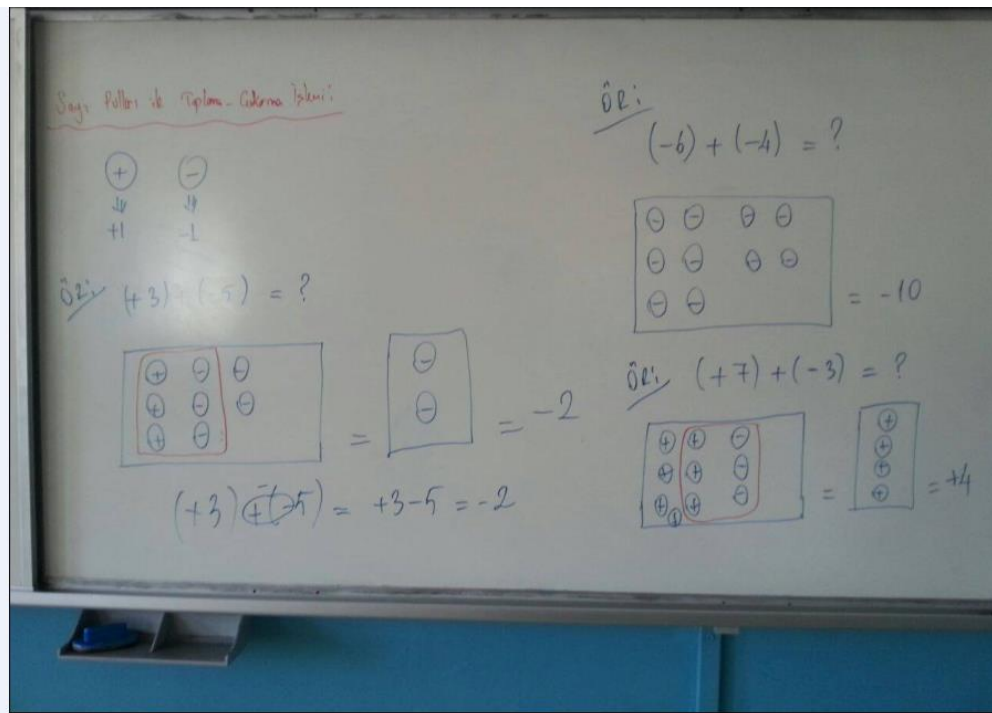 Sayı Pulları ile Toplama-Çıkarma İşlemi:
⊕ ⊖
⇓ ⇓
+1 -1
ÖR: (+3)+(-5) = ?
⊕ ⊖ ⊖
⊕ ⊖ ⊖
⊕ ⊖
=
⊖
⊖
= -2
(+3)+(-5) = +3-5 = -2
ÖR:
(-6) + (-4) = ?
⊖ ⊖ ⊖ ⊖
⊖ ⊖ ⊖ ⊖
⊖ ⊖
= -10
ÖR: (+7) + (-3) = ?
⊕ ⊕ ⊖
⊕ ⊕ ⊖
⊕ ⊕ ⊕ ⊖
=
⊕
⊕
⊕
⊕
= +4